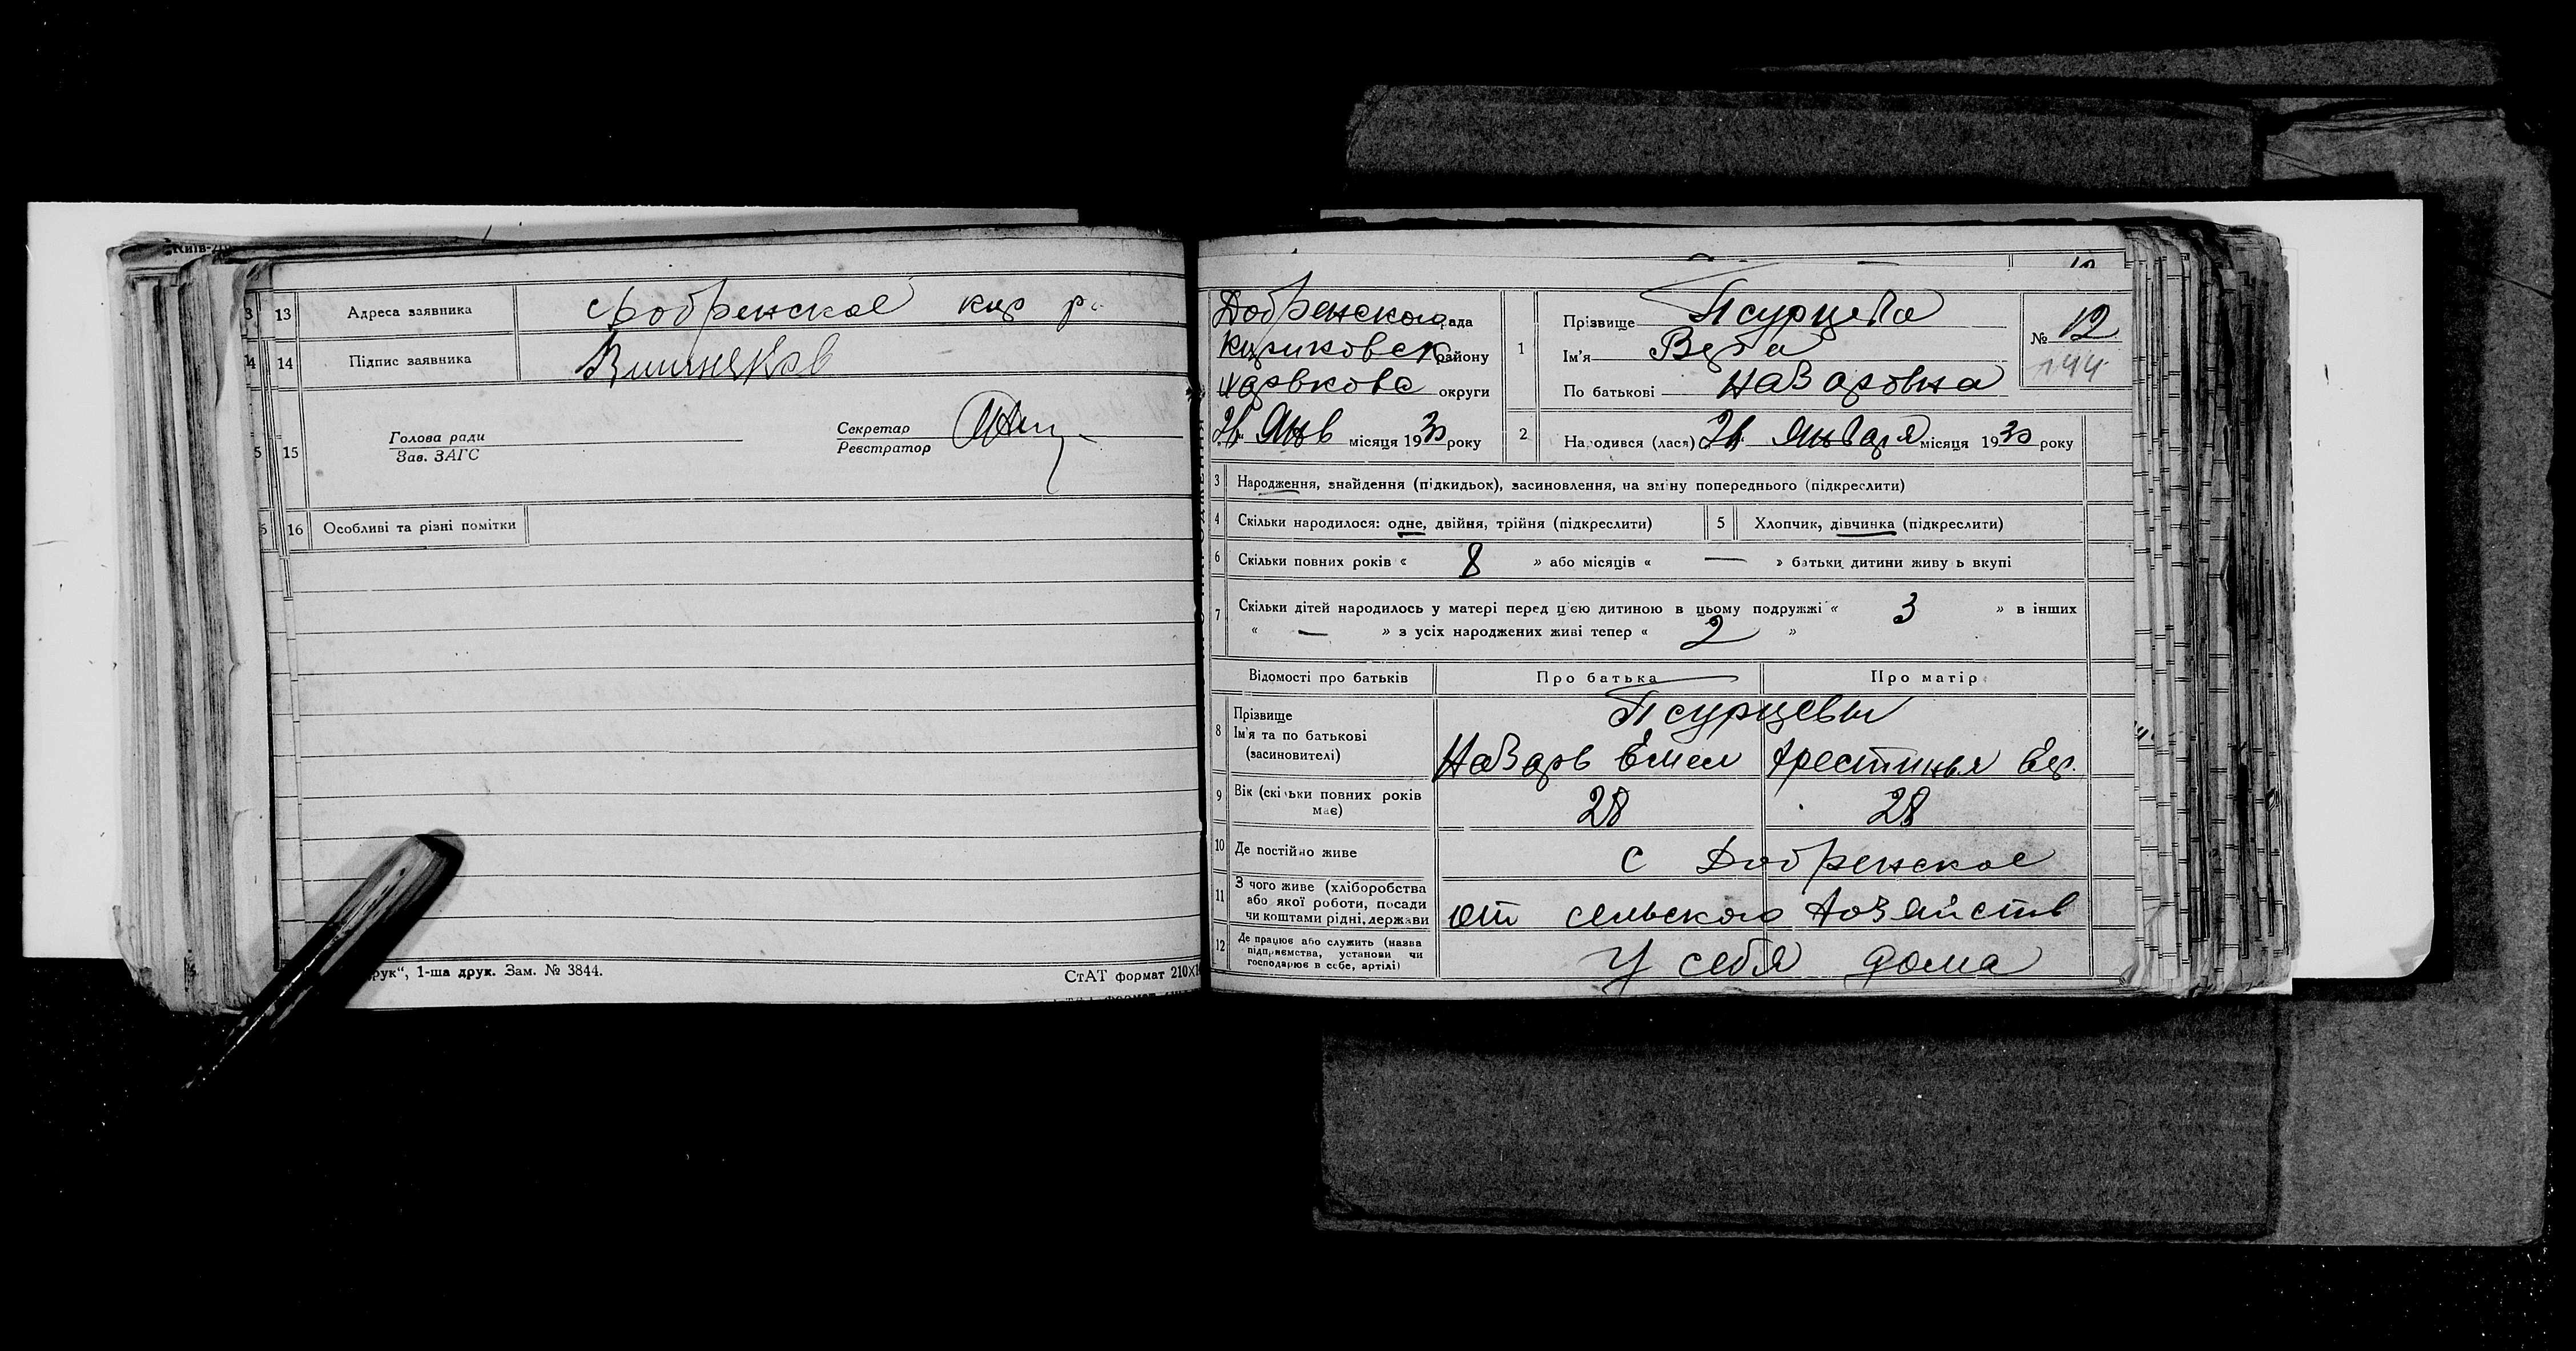 13 Адреса заявника с Добренское кир р.
14 Підпис заявника Вишняков
15 Голова ради
Зав. ЗАГС
Секретар
Реєстратор
16 Особливі та різні помітки
друк“, 1-ша друк. Зам. № 3844.
СтАТ формат 210×1
Добренского рада
району
Харькова округи
Янв місяця 1930 року
1 Прізвище Псурцева
Ім'я Вера
По батькові Назаровна
№ 12
144
2 Народився (лася) Января місяця 1930 року
3 Народження, знайдення (підкидьок), засиновлення, на зміну попереднього (підкреслити)
4 Скільки народилося: одне, двійня, трійня (підкреслити)
5 Хлопчик, дівчинка (підкреслити)
6 Скільки повних років « 8 » або місяців « — » батьки дитини живуть вкупі
7 Скільки дітей народилось у матері перед цією дитиною в цьому подружжі « 3 » в інших
« — » з усіх народжених живі тепер « 2 »
Відомості про батьків Про батька Про матір
8 Прізвище Псурцевы
Ім'я та по батькові
(засиновителі) Назарь Емел Хрестинья Ег.
9 Вік (скільки повних років
має) 28 28
10 Де постійно живе с Добренское
11 З чого живе (хліборобства
або якої роботи, посади
чи коштами рідні, держави от сельского хозяйств
12 Де працює або служить (назва
підприємства, установи чи
господарює в себе, артілі) У себя дома